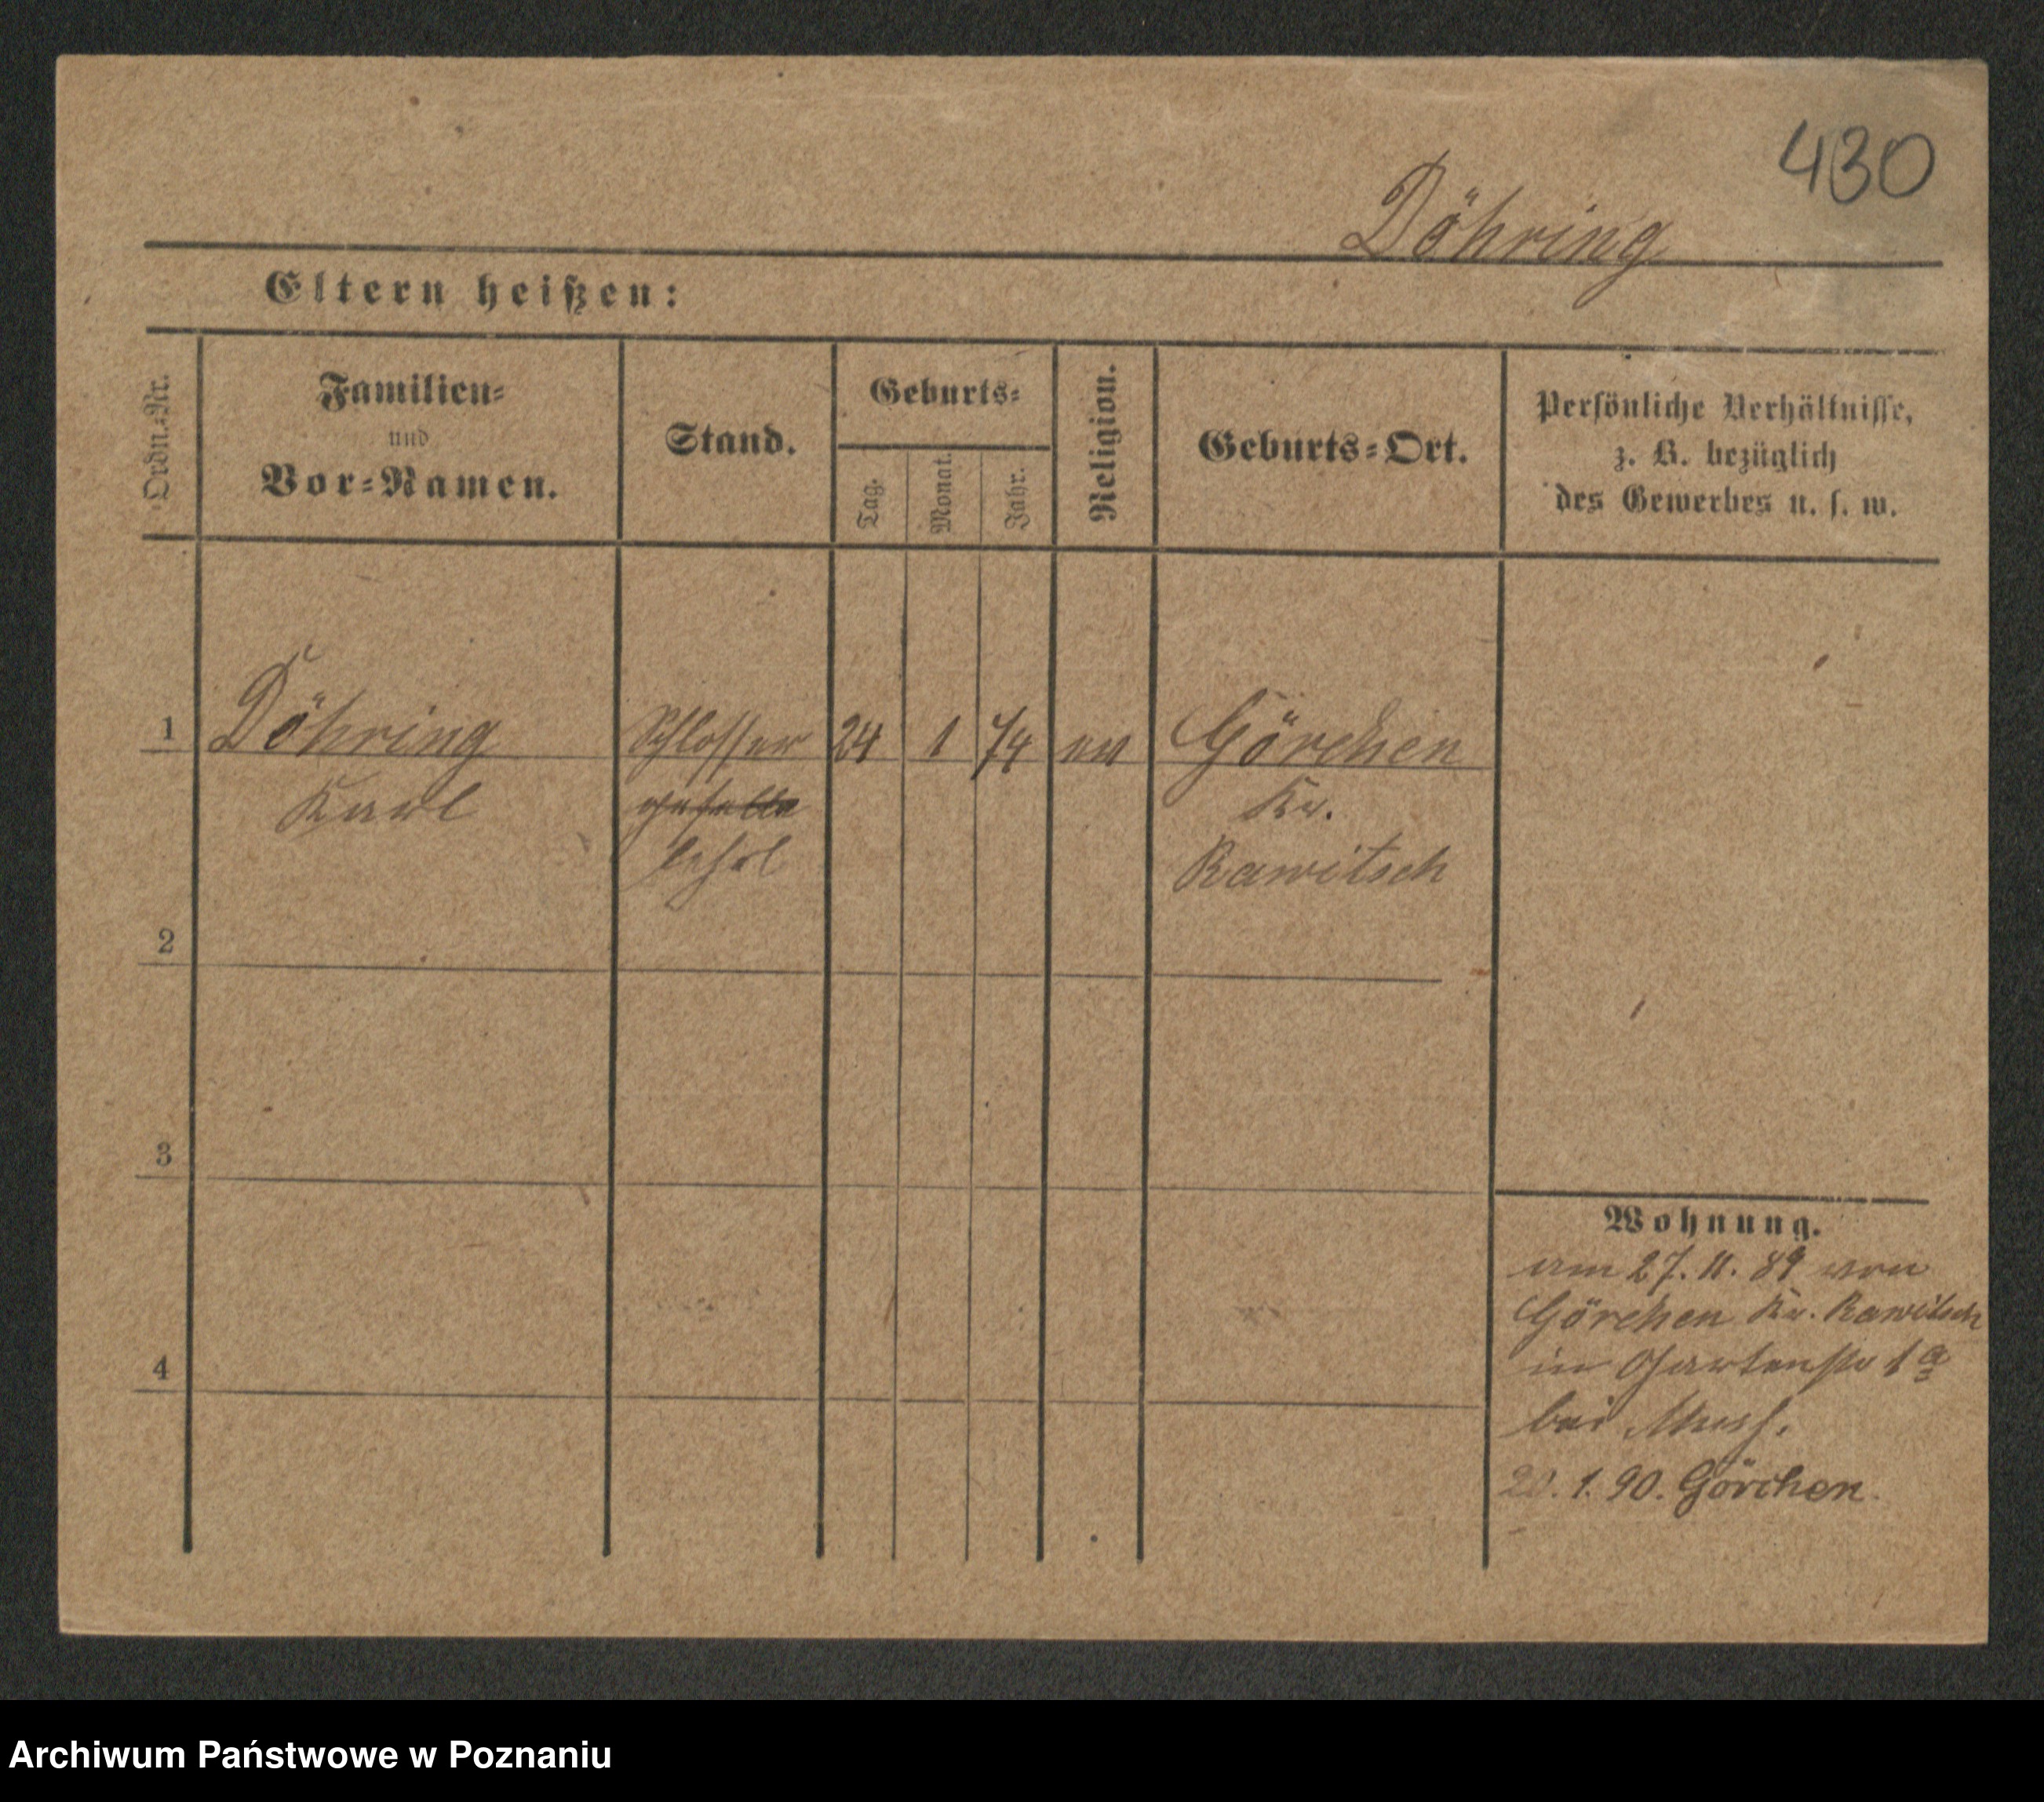 430
Döhring
Eltern heißen:
Ordn.-Nr.
Familien-
und
Vor-Namen.
Stand.
Geburts-
Tag.
Monat.
Jahr.
Religion.
Geburts-Ort.
Persönliche Verhältnisse,
z. B. bezüglich
des Gewerbes u. s. w.
1 Döhring Schlosser 24 1 74 ev Görchen
Karl geselle Kr.
lehrl Rawitsch
2
3
4
Wohnung.
am 27. 11. 89 von
Görchen Kr. Rawitsch
in Gartenstr 1 a
bei
1. 90. Görchen.
Archiwum Państwowe w Poznaniu